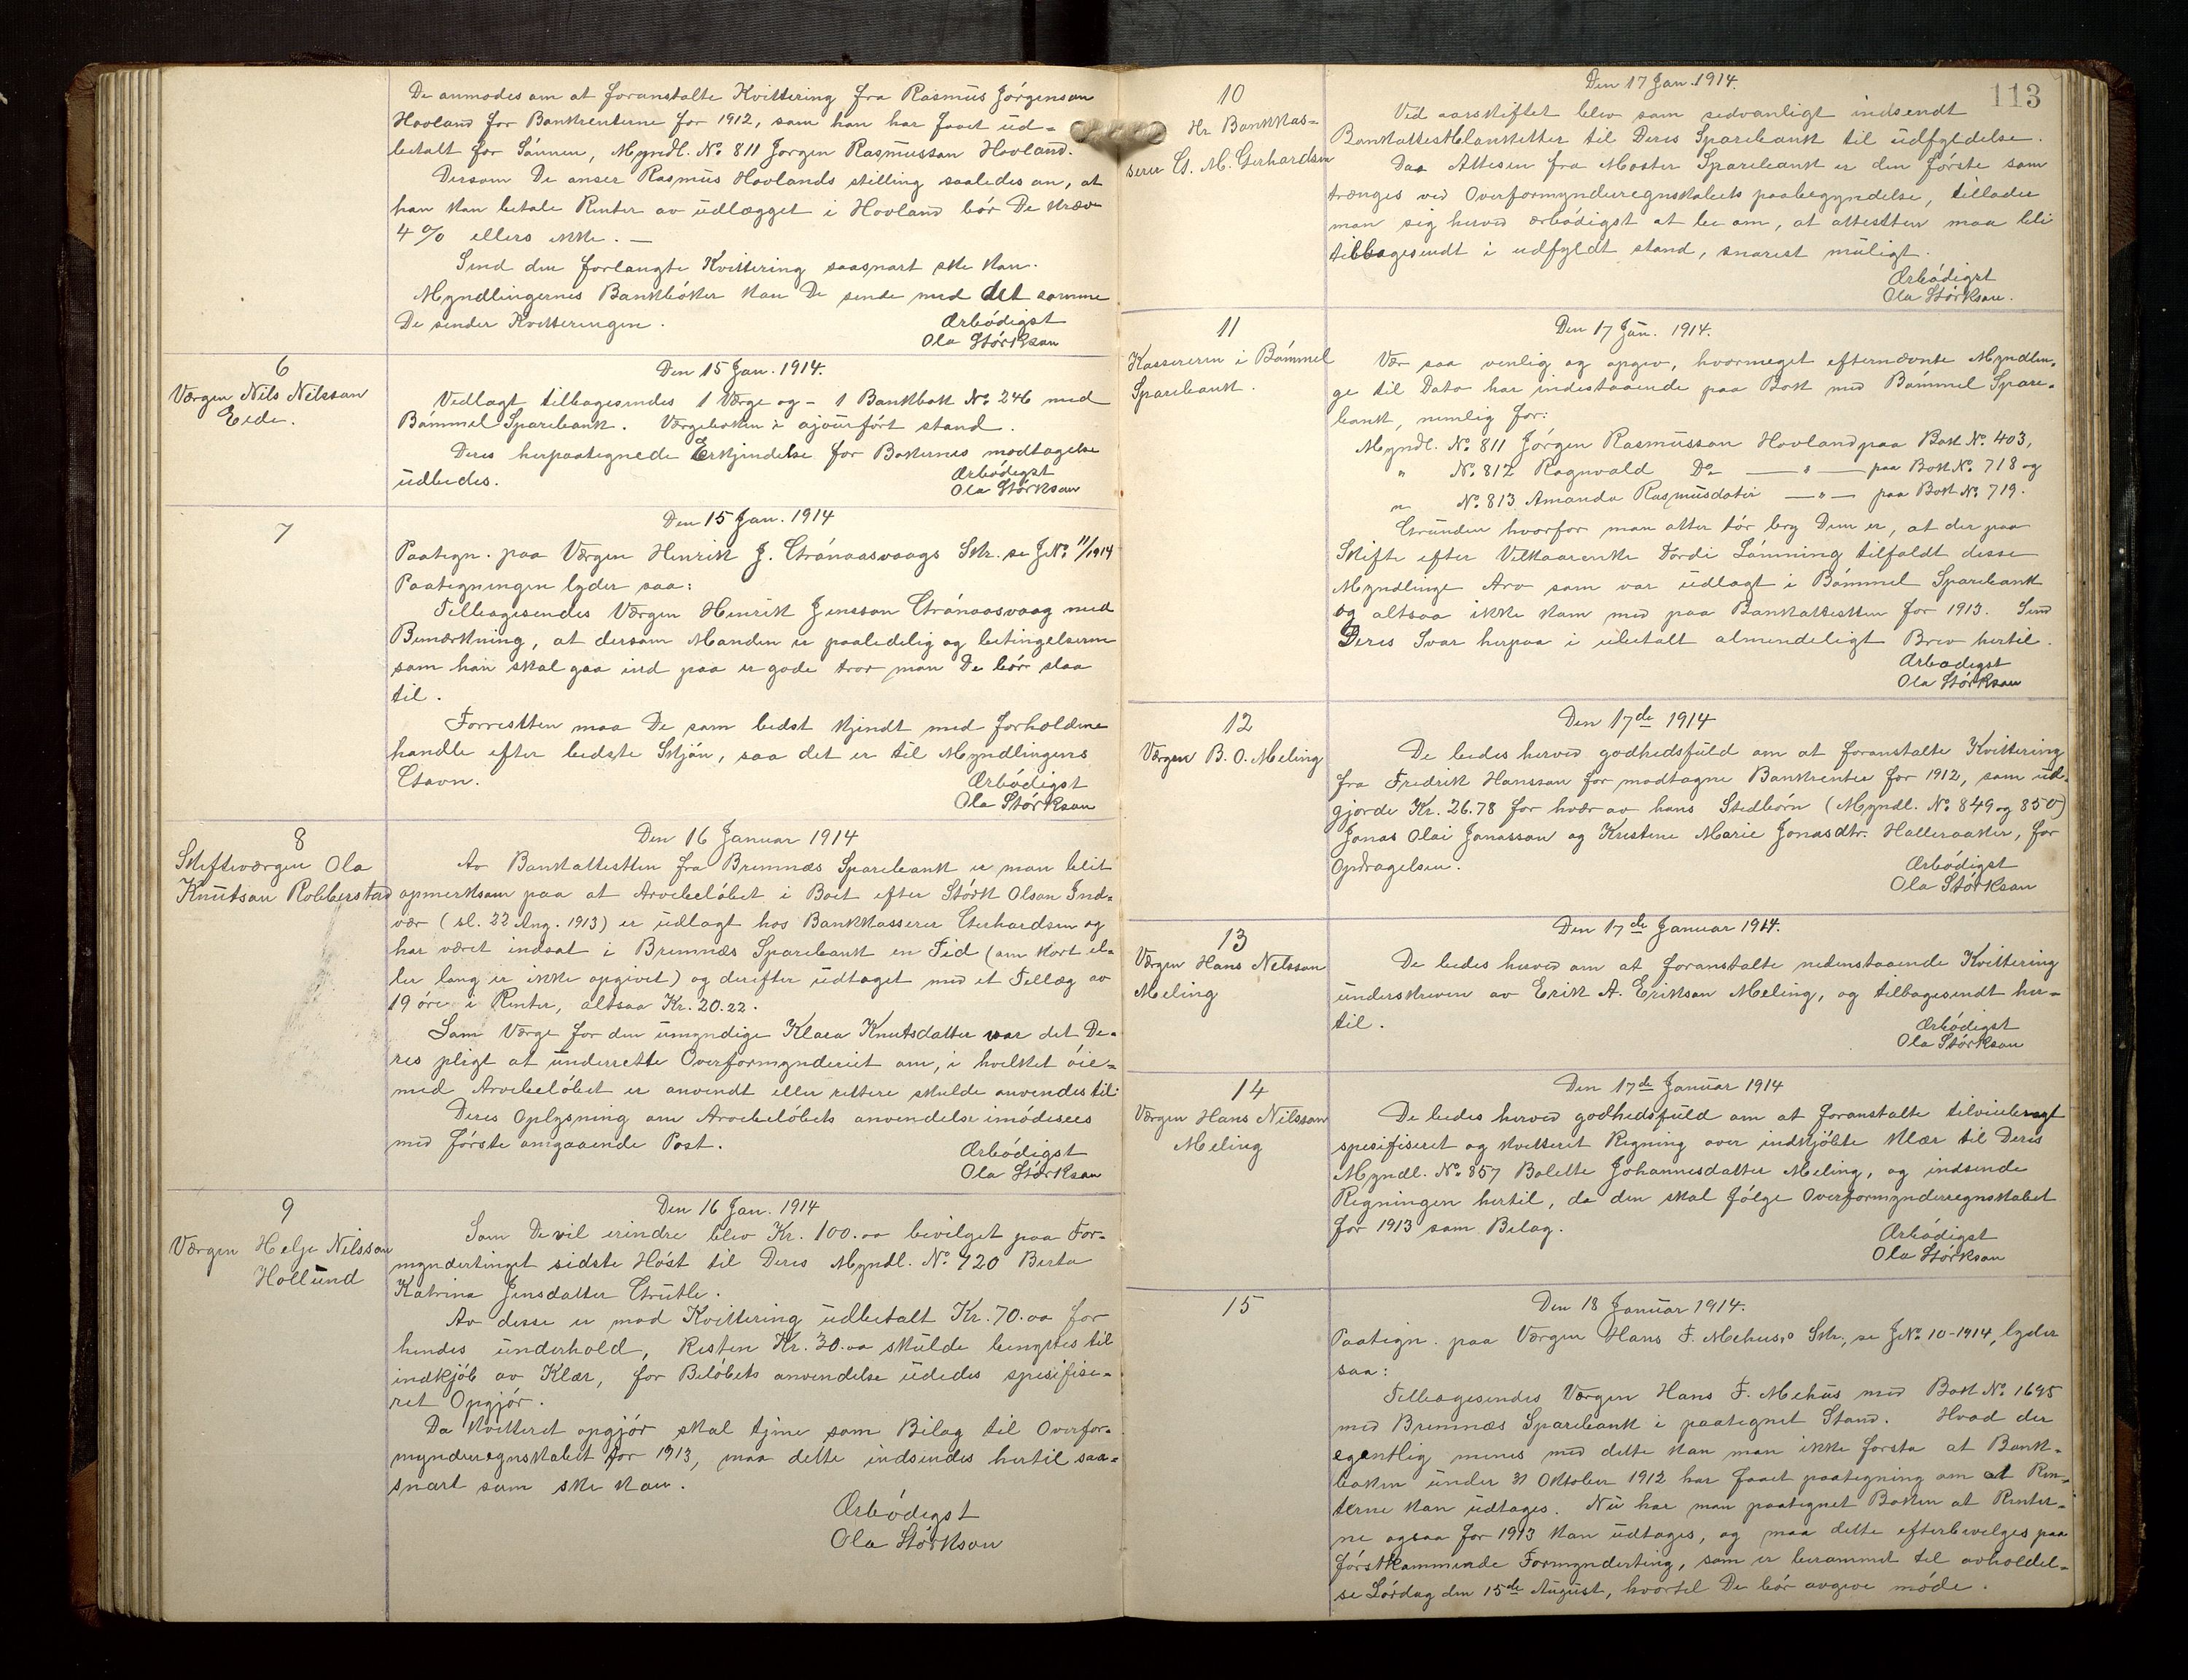 De anmodes om at foranstalte Kvittering fra Rasmus Jörgenson
Hovland for Bankrenterne for 1912, som han har faaet ud-
betalt for Sönnen, Myndl. No. 811 Jörgen Rasmusson Hovland.
Dersom De anser Rasmus Hovlands stilling saaledes an, at
han kan betale Renter av udlægget i Hovland bör De kræve
4% ellers ikke. —
Send den forlangte Kvittering saasnart ske kan.
Myndlingernes Bankböker kan De sende med det samme
De sender Kvitteringen.
Ærbödigst
Ola Störkson
6
Værgen Nils Nilsson
Eide.
Den 15 Jan. 1914.
Vedlagt tilbagesendes 1 Værge og - 1 Bankbok No. 246 med
Bömmel Sparebank. Værgeboken i ajourfört stand.
Deres herpaategnede Erkjendelse for Bökernes modtagelse
udbedes.
Ærbödigst
Ola Störkson
7
Den 15 Jan. 1914
Paategn. paa Værgen Henrik J. Grönaasvaags Skr. se J.No. 11/1914
Paategningen lyder saa:
Tilbagesendes Værgen Henrik Jensson Grönaasvaag med
Bemærkning, at dersom Manden er paalidelig og betingelserne
som han skal gaa ind paa er gode tror man De bör slaa
til.
Forresten maa De som bedst kjendt med forholdene
handle efter bedste Skjön, saa det er til Myndlingens
Gavn.
Ærbödigst
Ola Störkson
8
Skifteværgen Ola
Knutson Robberstad
Den 16 Januar 1914
Av Bankattesten fra Bremnæs Sparebank er man blit
opmerksom paa at Arvebelöbet i Boet efter Störk Olson Ind-
vær (sl. 22 Aug. 1913) er udlagt hos Bankkasserer Gerhardsen og
har været indsat i Bremnæs Sparebank en Tid (om kort el-
ler lang er ikke opgivet) og derefter udtaget med et Tillæg av
19 öre i Renter, altsaa Kr. 20.22.
Som Værge for den umyndige Klara Knutsdatter var det De-
res pligt at underrette Overformynderiet om, i hvilket öie-
med Arvebelöbet er anvendt eller rettere skulde anvendes til:
Deres Oplysning om Arvebelöbets anvendelse imödesees
med förste omgaaende Post.
Ærbödigst
Ola Störkson
9
Værgen Helje Nilsson
Hollund
Den 16 Jan. 1914
Som De vil erindre blev Kr. 100.00 bevilget paa For-
myndertinget sidste Höst til Deres Myndl. No. 720 Berta
Katrina Jensdatter Grutle.
Av disse er mod Kvittering udbetalt Kr. 70.00 for
hendes underhold, Resten Kr. 30.00 skulde benyttes til
indkjöb av Klær, for Belöbets anvendelse udedes spesifise-
ret Opgjör.
Da kvitteret opgjör skal tjene som Bilag til Overfor-
mynderregnskabet for 1913, maa dette indsendes hertil saa-
snart som ske kan.
Ærbödigst
Ola Störkson
113
10
Hr. Bankkas-
serer G. M. Gerhardsen
Den 17 Jan. 1914.
Ved aarskiftet blev som sedvanligt indsendt
Bankattestblanketter til Deres Sparebank til udfyldelse.
Daa Attesen fra Moster Sparebank er den förste som
trænges ved Overformynderregnskabets paabegyndelse, tillader
man sig herved ærbödigst at be om, at attesten maa bli
tilbagesendt i udfyldt stand, snarest muligt.
Ærbödigst
Ola Störkson.
11
Kassereren i Bömmel
Sparebank.
Den 17 Jan. 1914.
Vær saa venlig og opgiv, hvormeget efternævnte Myndlin-
ge til Dato har indestaaende paa Bok med Bömmel Spare-
bank, nemlig for:
Myndl. No. 811 Jörgen Rasmusson Hovland paa Bok No. 403,
" No. 812 Ragnvald Do — " — paa Bok No. 718 og
" No. 813 Amanda Rasmusdotir — " — paa Bok No. 719.
Grunden hvorfor man atter tör bry Dem er, at der paa
Skifte efter Vilkaarenke Tordi Lönning tilfaldt disse
Myndlinge Arv som var udlagt i Bömmel Sparebank
og altsaa ikke kom med paa Bankattesten for 1913. Send
Deres Svar herpaa i ubetalt almendeligt Brev hertil.
Ærbödigst
Ola Störkson
12
Værgen B. O. Meling
Den 17de 1914
De bedes herved godhedsfuld om at foranstalte Kvittering
fra Fredrik Hansson for modtagne Bankrenter for 1912, som ud-
gjorde Kr. 26.78 for hvær av hans Stedbörn (Myndl. No. 849 og 850)
Jonas Olai Jonasson og Kristine Marie Jonasdtr. Halleraaker, for
Opdragelsen.
Ærbödigst
Ola Störkson
13
Værgen Hans Nilsson
Meling
Den 17de Januar 1914.
De bedes herved om at foranstalte nedenstaaende Kvittering
underskreven av Erik A. Erikson Meling, og tilbagesendt her-
til.
Ærbödigst
Ola Störkson
14
Værgen Hans Nilsson
Meling
Den 17de Januar 1914
De bedes herved godhedsfuld om at foranstalte tilveiebragt
spesifiseret og kvitteret Regning over indkjöbte Klær til Deres
Myndl. No. 857 Bolette Johannesdatter Meling, og indsende
Regningen hertil, da den skal fölge Overformynderregnskabet
for 1913 som Belag.
Ærbödigst
Ola Störkson
15
Den 18 Januar 1914.
Paategn. paa Værgen Hans F. Mehus,s Skr., se J.No. 10-1914, lyder
saa:
Tilbagesendes Værgen Hans F. Mehus med Bok No. 1695
med Bremnæs Sparebank i paategnet Stand. Hvad der
egentlig menes med dette kan man ikke forsta at Bank-
boken under 31 Oktober 1912 har faaet paategning om at Ren-
terne kan udtages. Nu har man paategnet Boken at Renter-
ne ogsaa for 1913 kan udtages, og maa dette efterbevilges paa
förstkommende Formynderting, som er berammet til avholdel-
se Lördag den 15de August, hvortil De bör avgive möde.